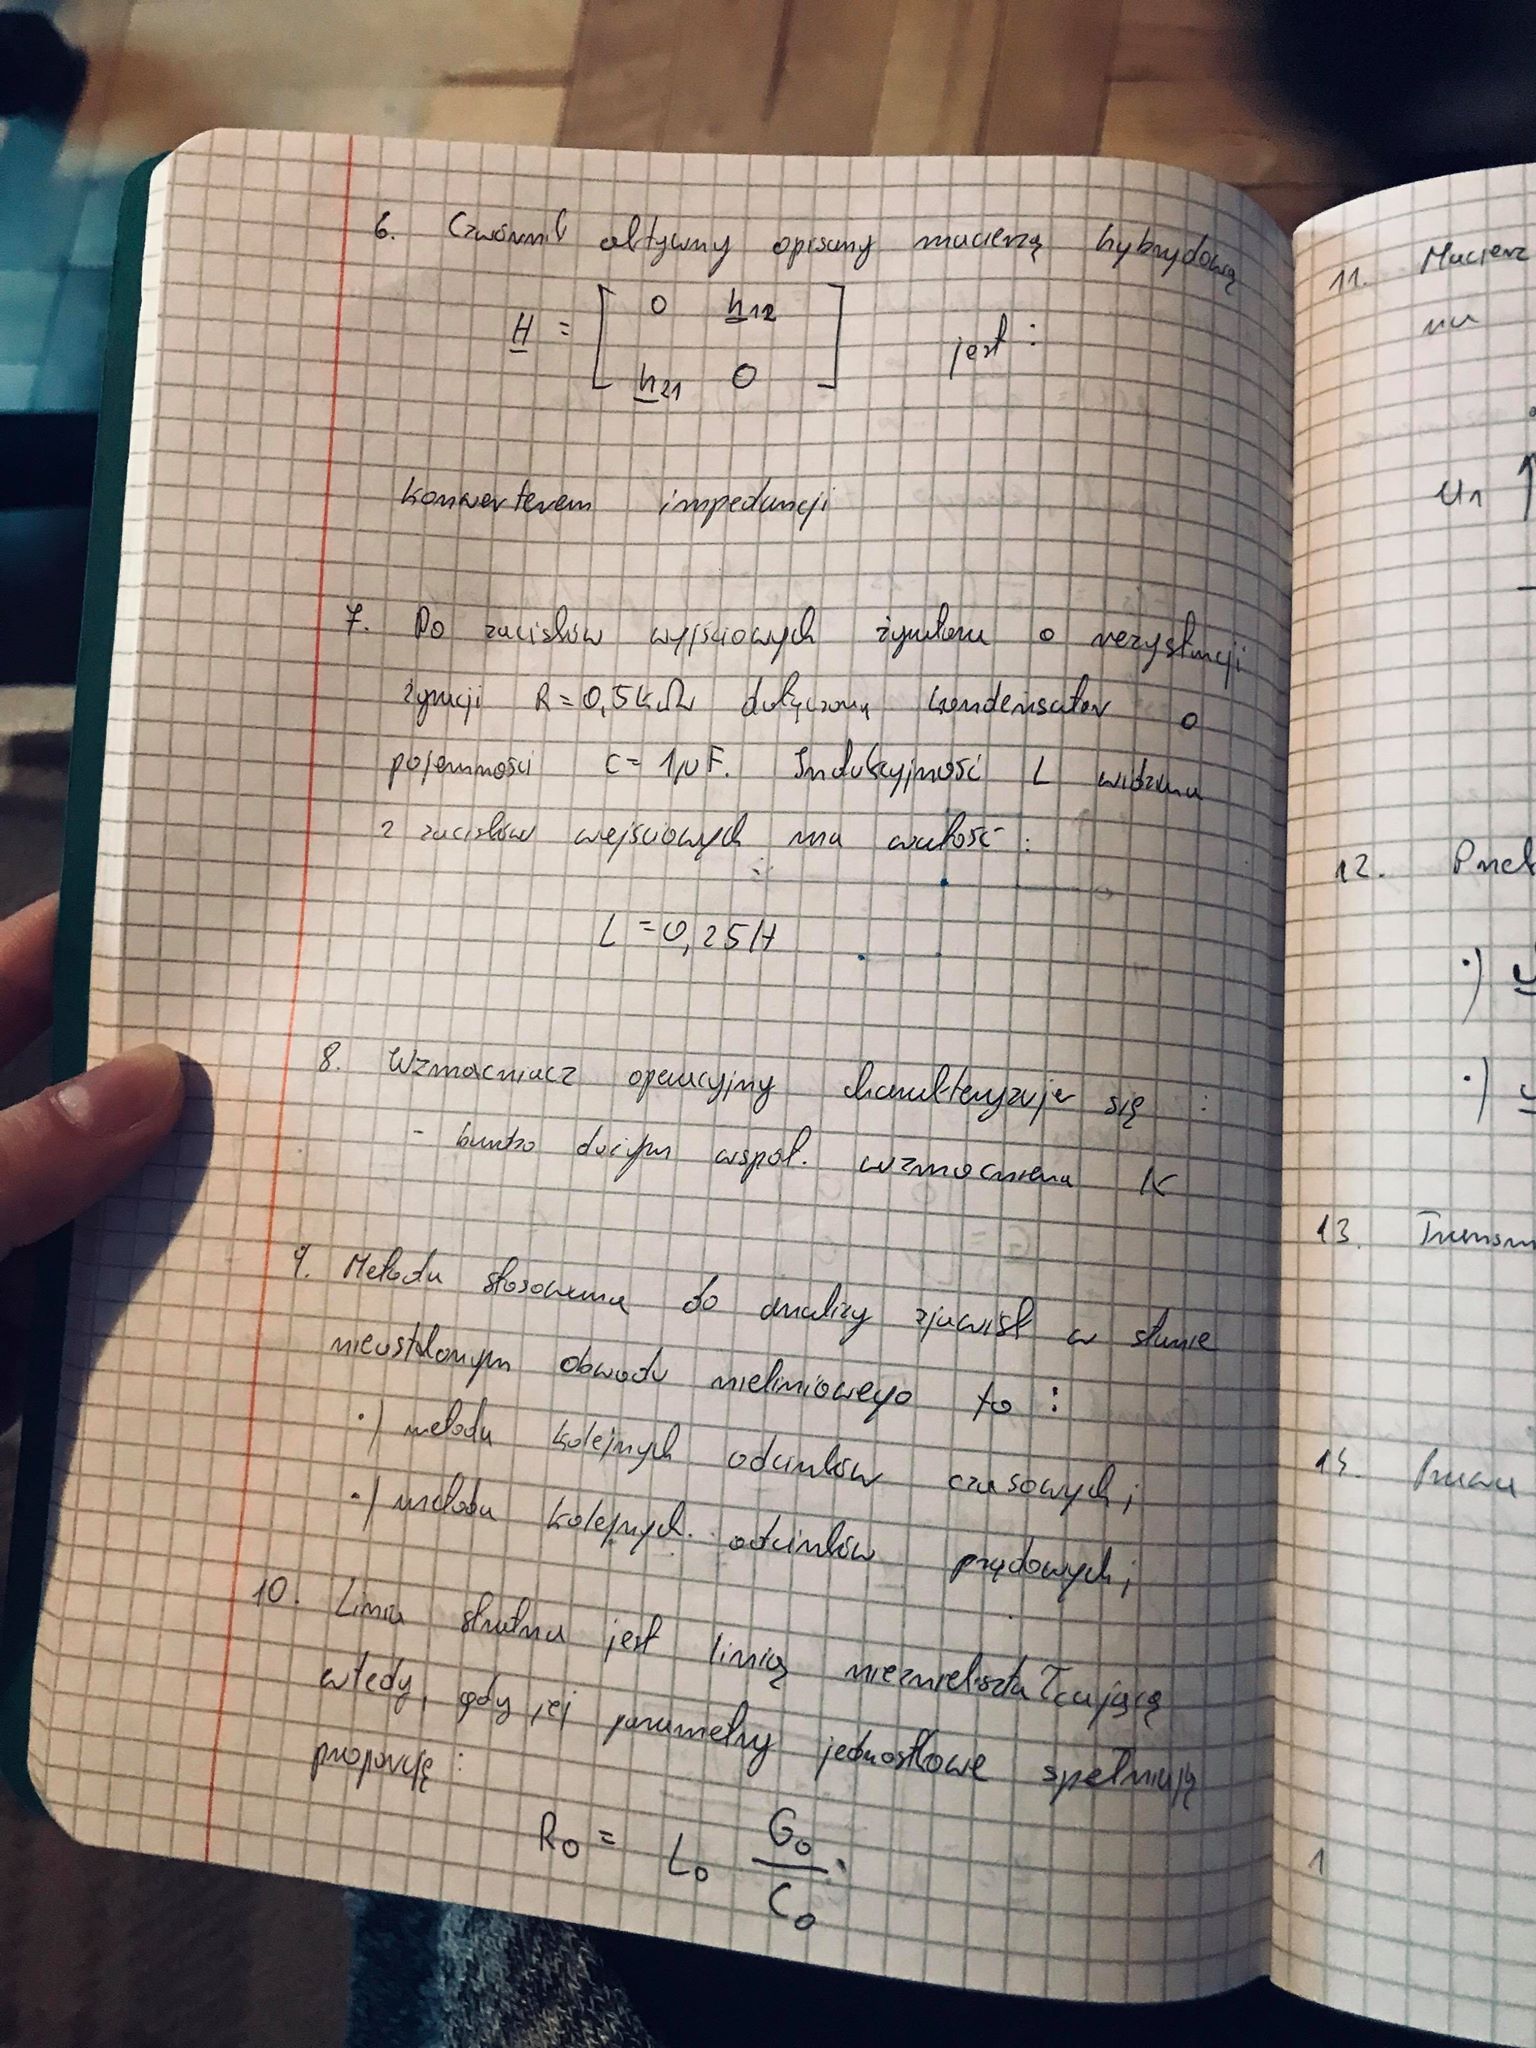 6. Czwórnik aktywny opisany macierzą hybrydową
H = [ 0 h12
h21 0 ] jest:
konwerterem impedancji
7. Do zacisków wyjściowych żyratora o rezystancji
żyracji R = 0,5kΩ dołączono kondensator o
pojemności C = 1μF. Indukcyjność L widziana
z zacisków wejściowych ma wartość:
L = 0,25H
8. Wzmacniacz operacyjny charakteryzuje się:
- bardzo dużym współ. wzmocnienia K
9. Metoda stosowana do analizy zjawisk w stanie
nieustalonym obwodu nieliniowego to:
·) metoda kolejnych odcinków czasowych;
·) metoda kolejnych odcinków prądowych;
10. Linia stratna jest linią niezniekształcającą
wtedy, gdy jej parametry jednostkowe spełniają
proporcję:
R0 = L0 G0/C0.
11. Macierz
na
U1
12.
·) U
·) U
13.
1